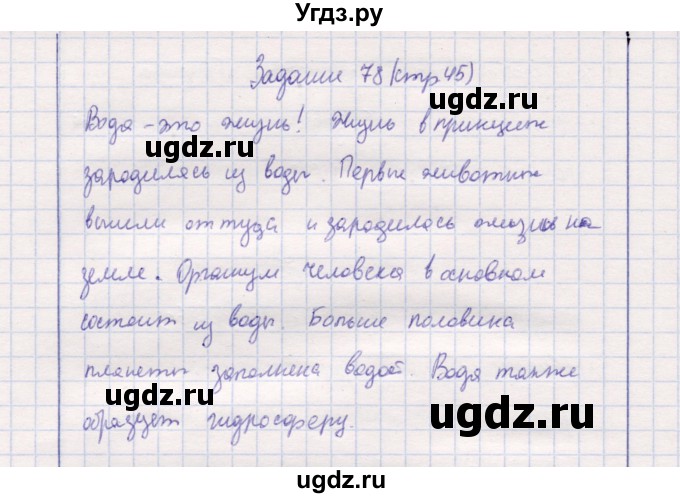 Угдз.ру
Задание 78 (стр 45)
ugdz.ru
Вода - это жизнь! Жизнь в принципе
ugdz.ru
зародилась из воды. Первые животные
ugdz.ru
вышли оттуда и зародилась жизнь на
земле. Организм человека в основном
ugdz.ru
состоит из воды. Больше половина
планеты заполнена водой. Вода также
ugdz.ru
образует гидросферу.
ugdz.ru
ugdz.ru